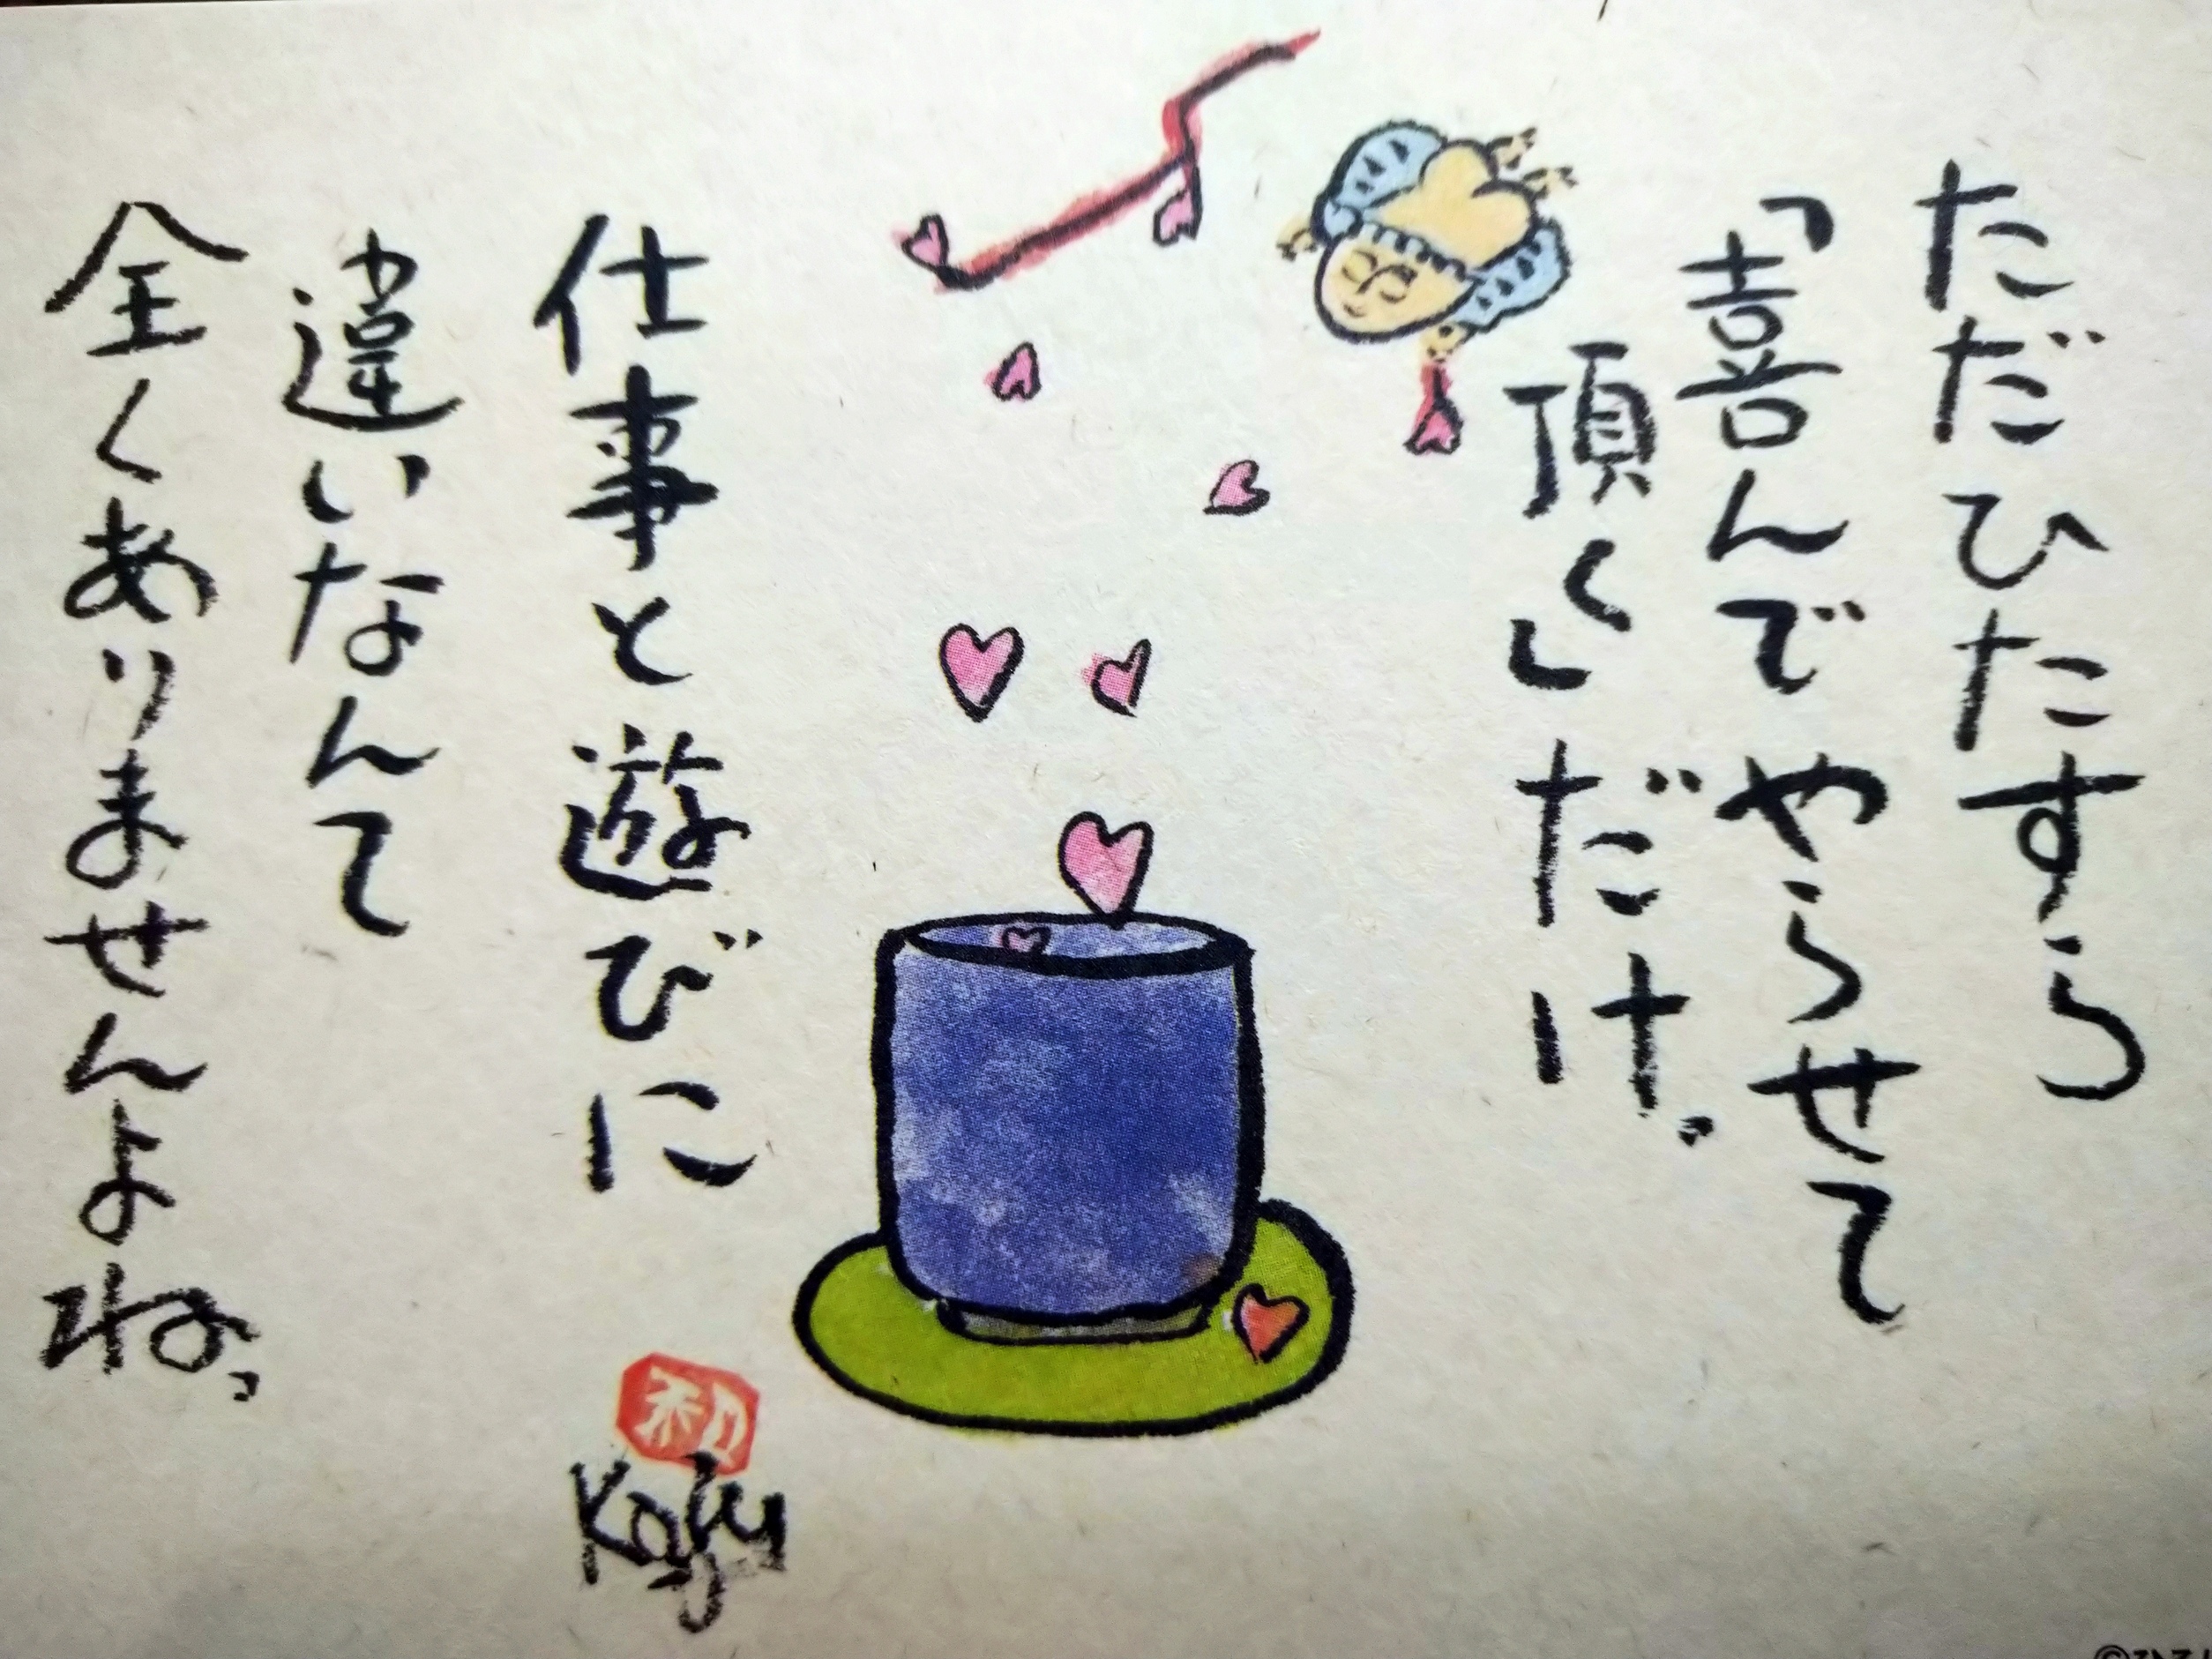 ただひたすら
「喜んでやらせて
頂く」だけ。
仕事と遊びに
違いなんて
全くありませんよね。